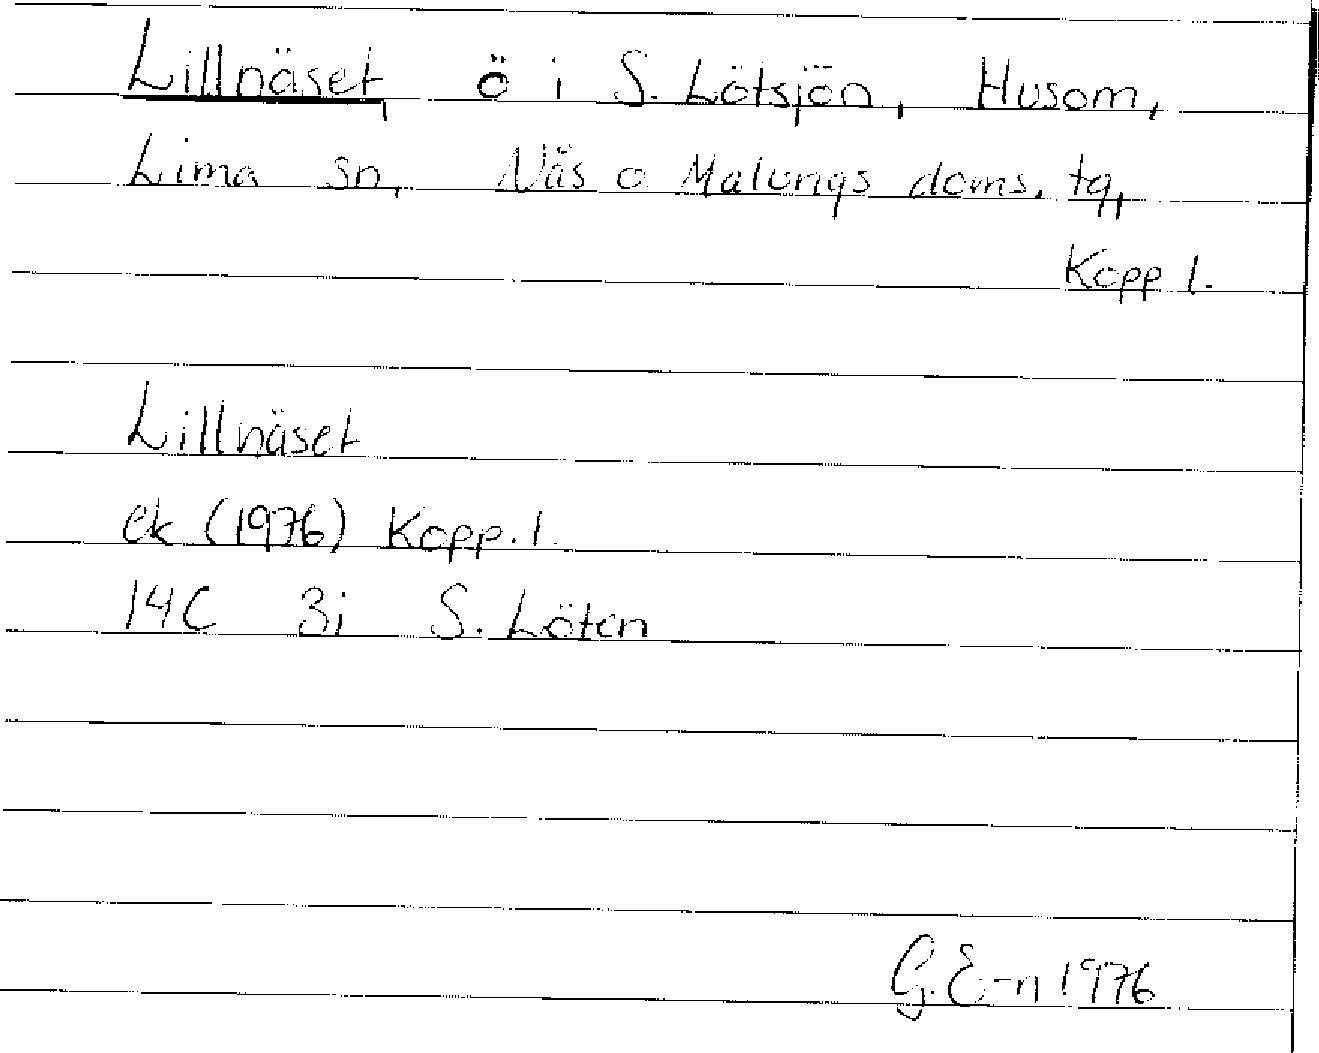 Lillnäset, ö i S. Lötsjön, Husom,
Lima sn, Näs o Malungs doms. tg,
Kopp l.
Lillnäset
ek (1976) Kopp. l.
14C 3i S. Löten
G. E-n 1976